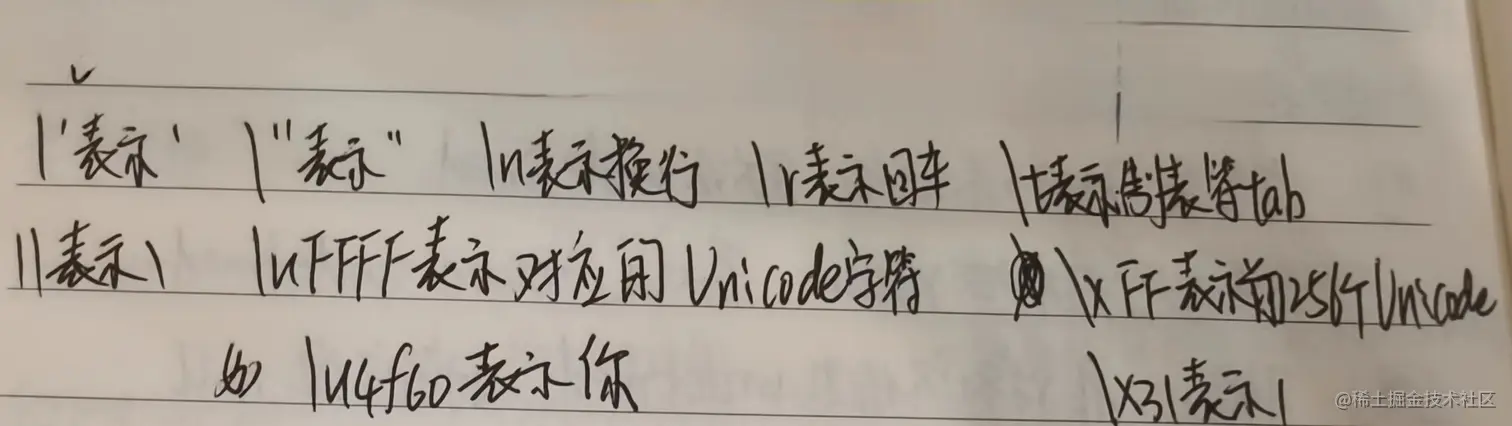 \'表示'  \"表示"  \n表示换行  \r表示回车  \t表示制表符tab
\\表示\  \uFFFF表示对应的Unicode字符  \xFF表示前256个Unicode
如 \u4f60表示你  \x31表示1
@稀土掘金技术社区